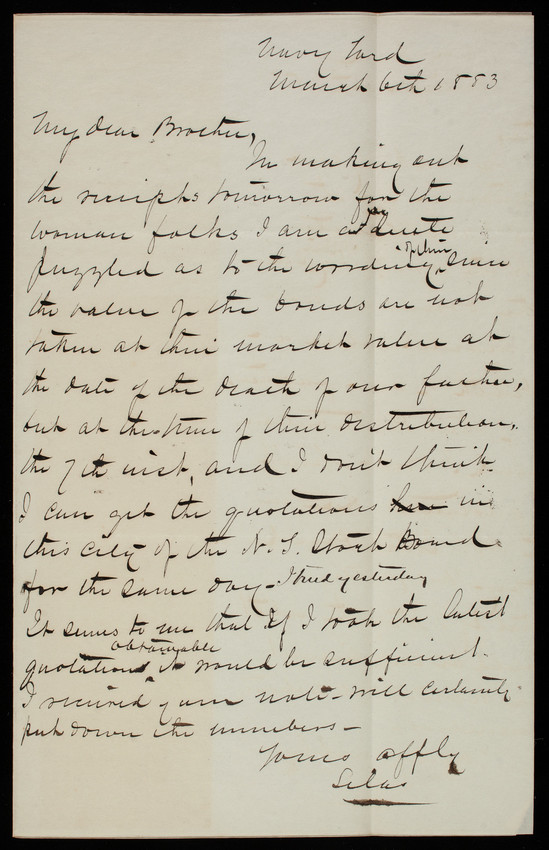 Navy Yard
March 6th 1883
My dear Brother,
In making out
the receipts tomorrow for the
woman folks I am quite
puzzled as to the wording of them, since
the value of the bonds are not
taken at their market value at
the date of the death of our father,
but at the time of their distribution,
the 7th inst, and I don't think
I can get the quotations in
this city of the N. Y. Stock Board
for the same day - I tried yesterday
It seems to me that if I took the latest
obtainable
quotations it would be sufficient.
I received your note - will certainly
put down the numbers -
Yours affly
Silas